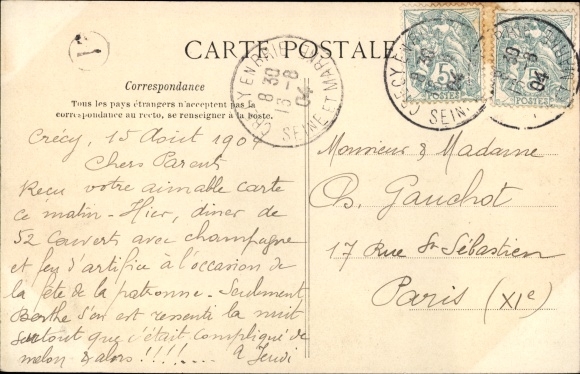 CARTE POSTALE
Correspondance
Tous les pays étrangers n'acceptent pas la
correspondance au recto, se renseigner à la poste.
CRÉCY EN BRIE
8 30
16 -8
04
SEINE ET MARNE
5
POSTES
5
POSTES
Crécy, 15 Août 1904
Chers Parents
Reçu votre aimable carte
ce matin - Hier, diner de
52 couverts avec champagne
et feu d'artifice à l'occasion de
la fête de la patronne - Seulement
Berthe s'en est ressenti la nuit
surtout que c'était compliqué de
melon & alors !!!!....
à Jeudi
Monsieur & Madame
Ch. Gauchot
17 Rue St Sébastien
Paris (XIe)